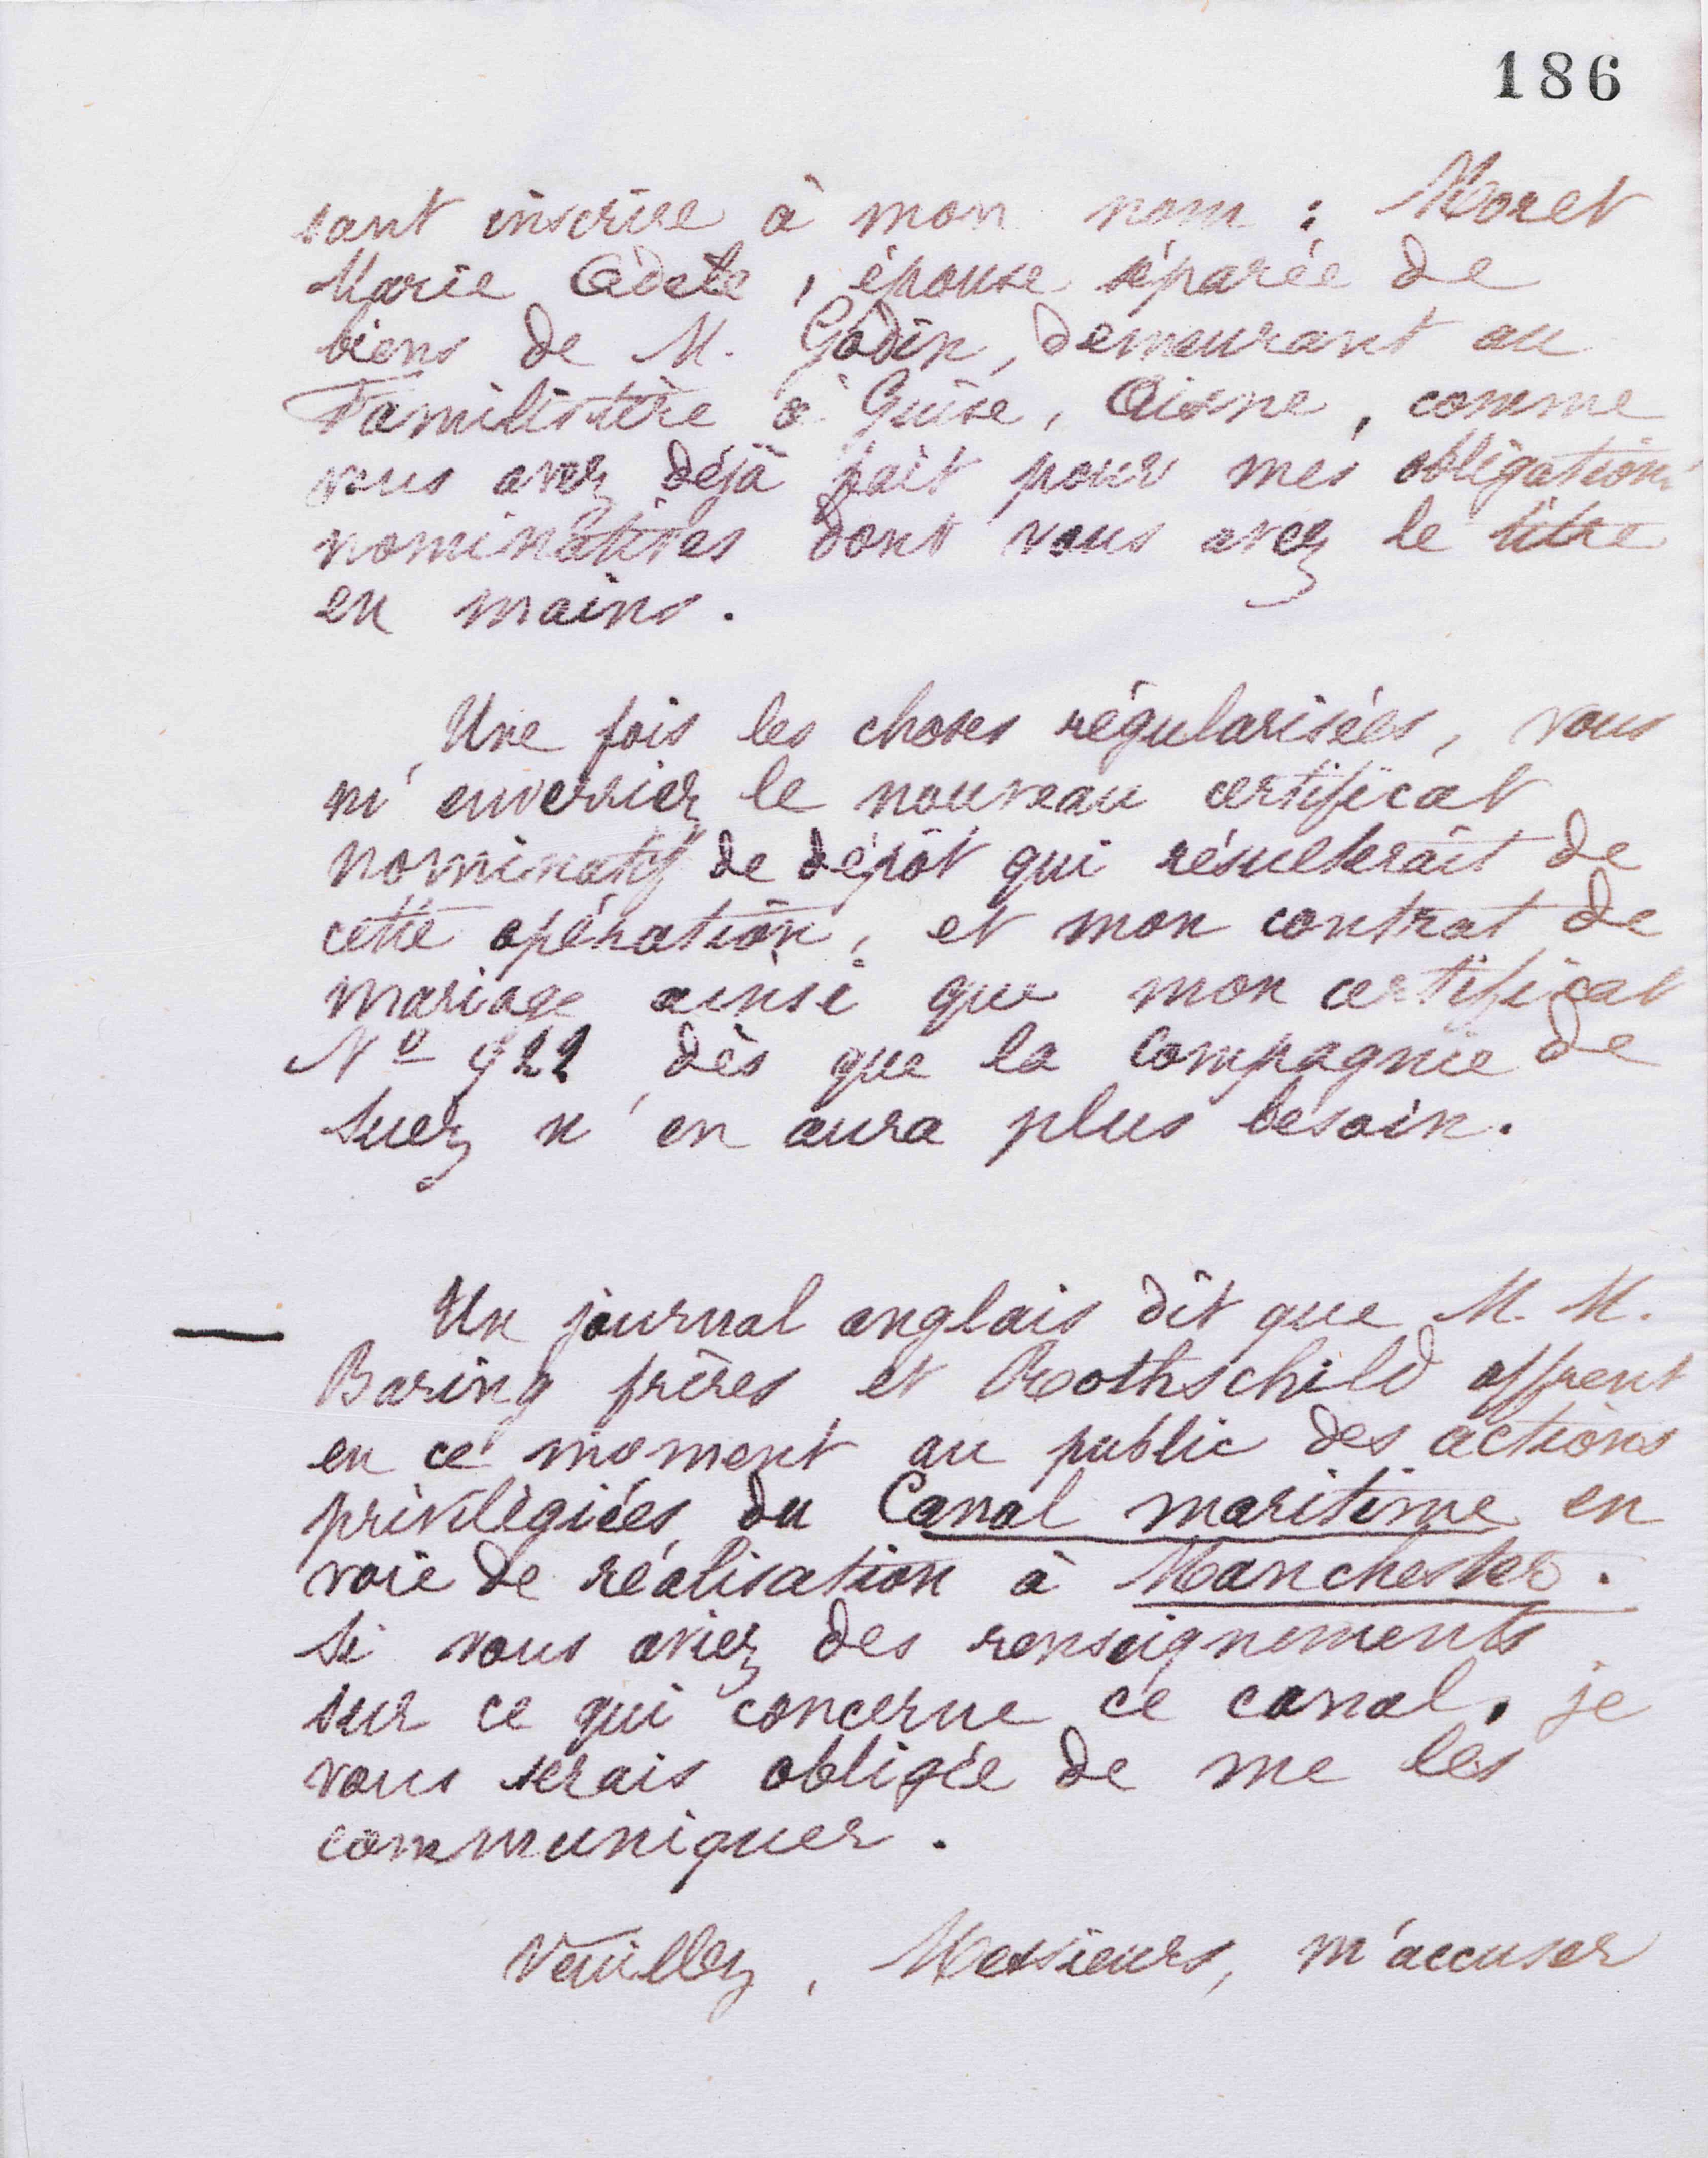 186
sant inscrire à mon nom : Moret
Marie Adèle, épouse séparée de
biens de M. Godin, demeurant au
Familistère à Guise, Aisne, comme
vous avez déjà fait pour mes obligations
nominatives dont vous avez le titre
en mains.
Une fois les choses régularisées, vous
m'enverriez le nouveau certificat
nominatif de dépôt qui résulterait de
cette opération, et mon contrat de
mariage ainsi que mon certificat
Nº 922 dès que la Compagnie de
Suez n'en aura plus besoin.
— Un journal anglais dit que M. M.
Baring frères et Rothschild offrent
en ce moment au public des actions
privilégiées du Canal maritime en
voie de réalisation à Manchester.
Si vous aviez des renseignements
sur ce qui concerne ce canal, je
vous serais obligée de me les
communiquer.
Veuillez, Messieurs, m'accuser